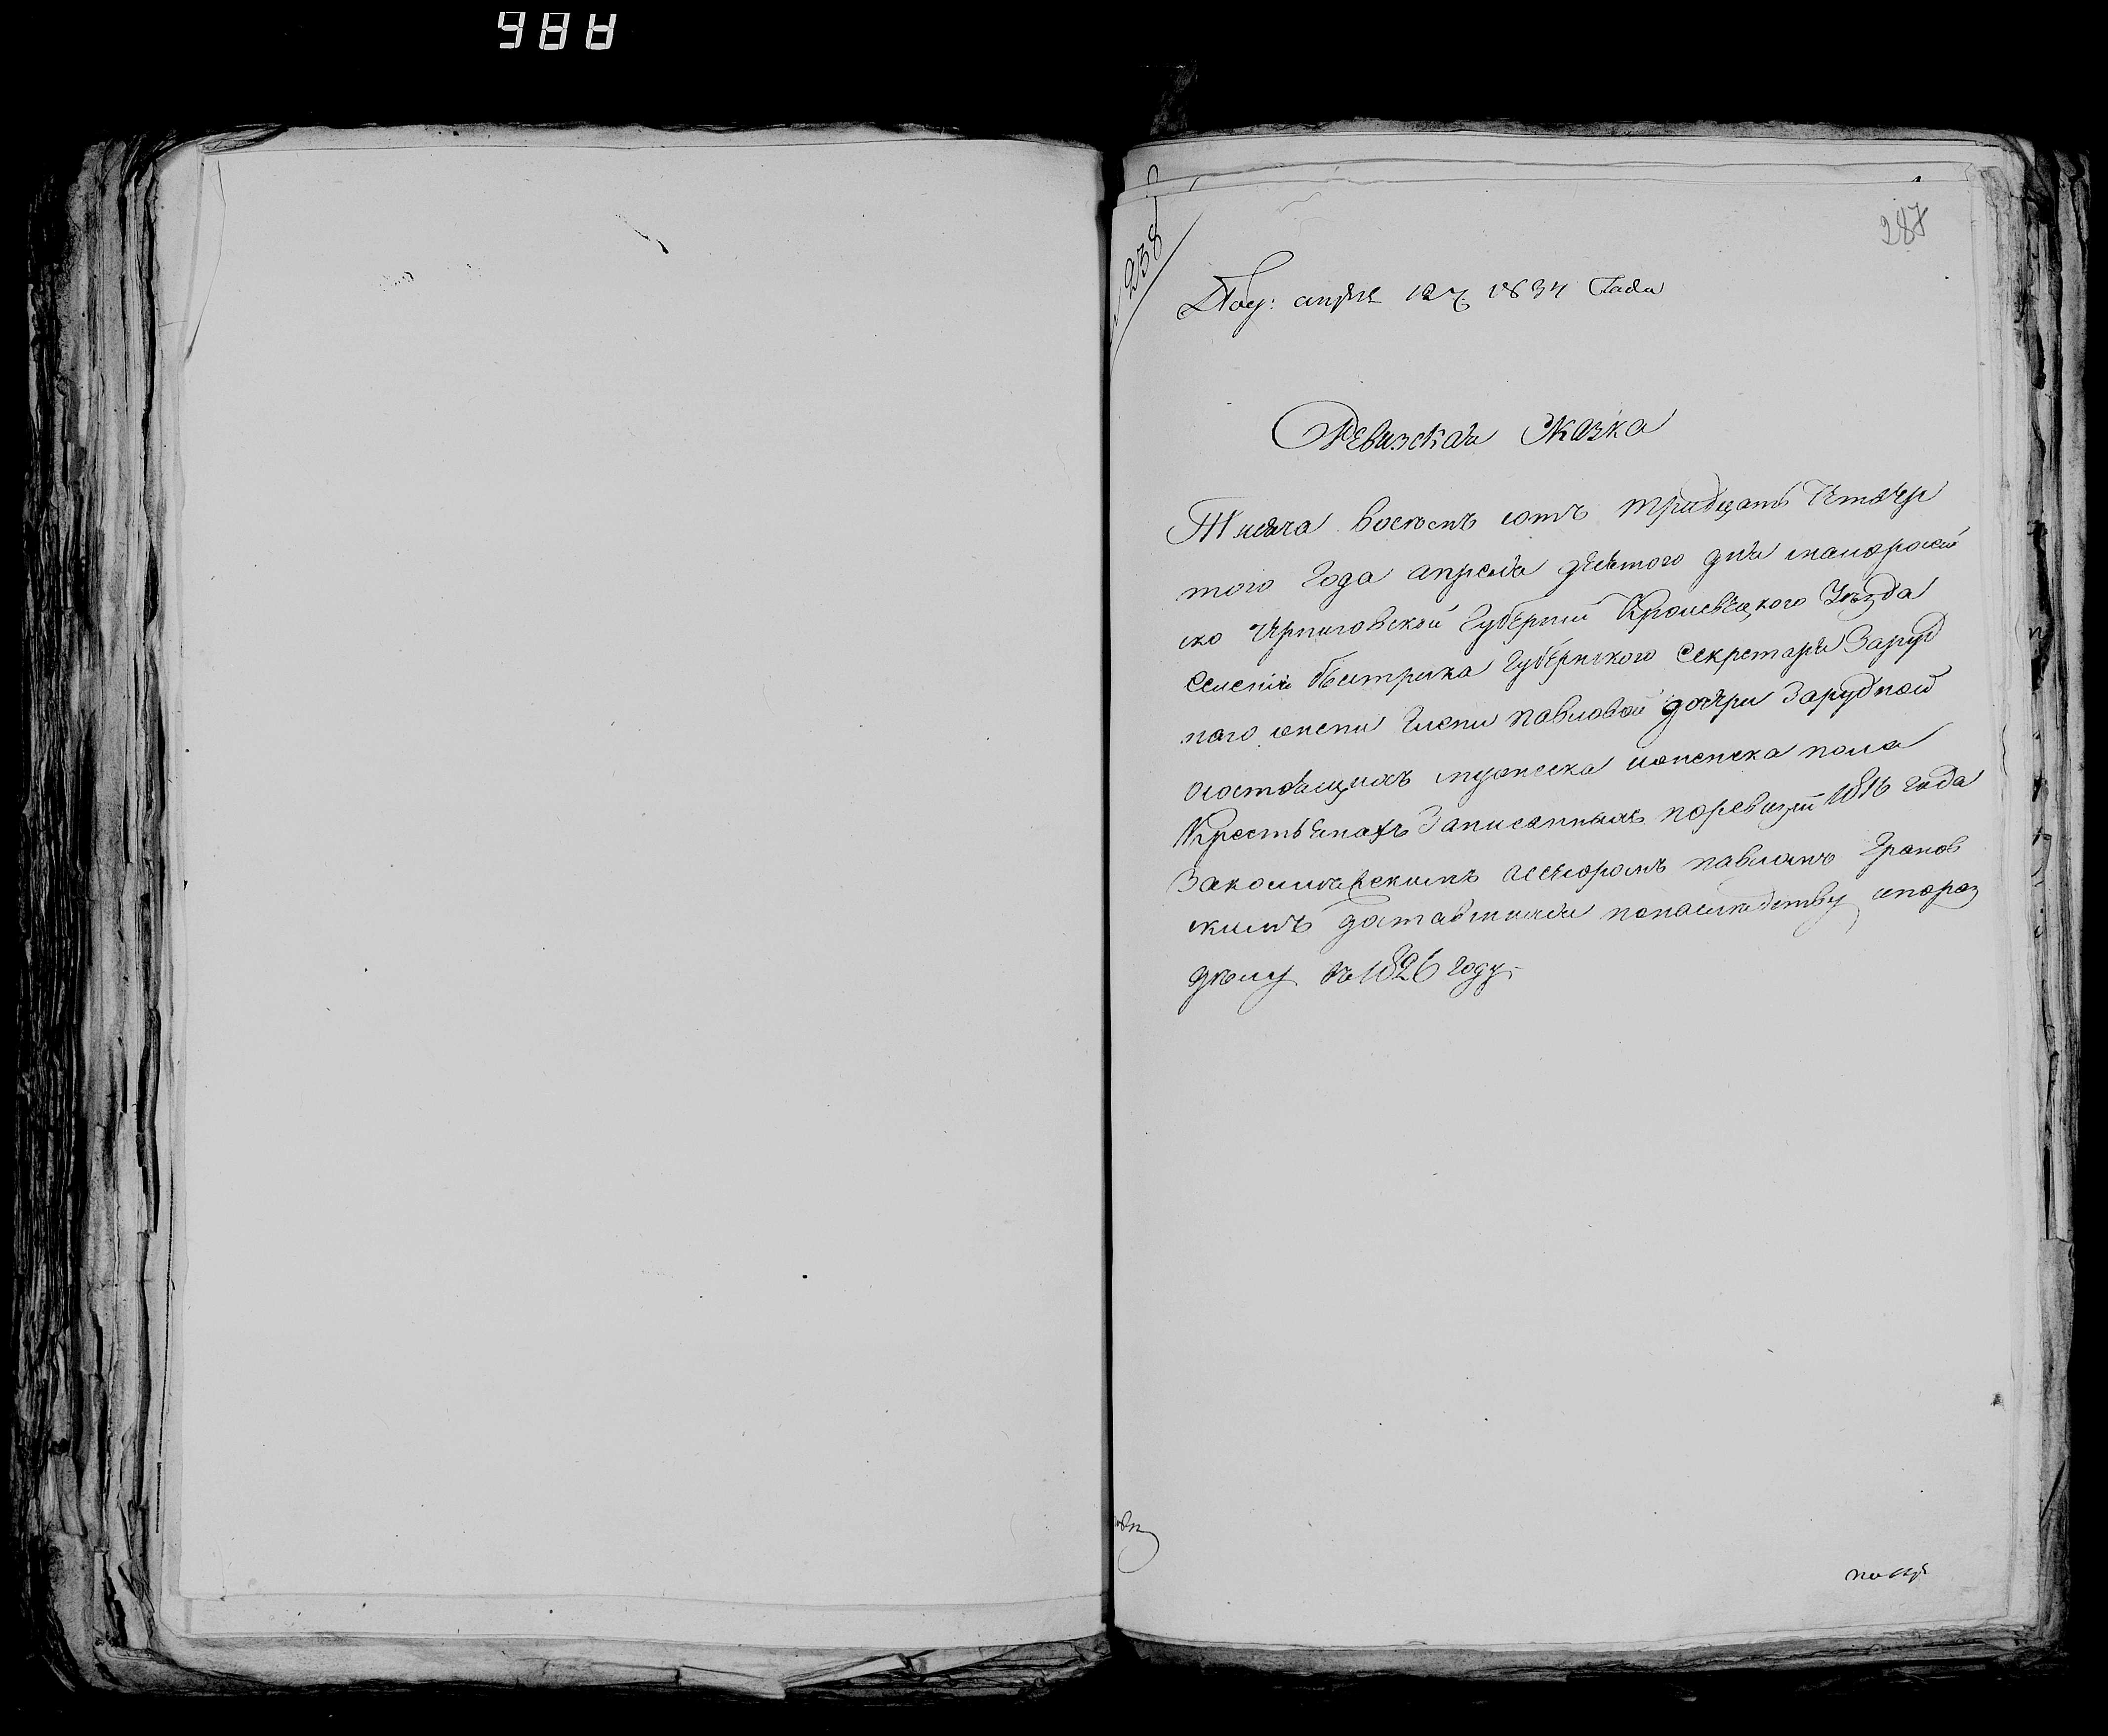 238
287
Под: апреля 12 1834 Года
Ревизская Сказка
Тисяча восемъ сотъ тридцать Четвер
того Года апреля девятого дня малоросій
ско Черниговской Губерніи Кролевецкого Уезда
Селенія быстрика Губернского Секретаря Заруд
ного жены Елены павловой дочери Зарудной
осостоящихъ мужеска иженска пола
Крестьянахъ Записанныхъ поревизіи 1816 года
Заколлежскимъ асесоромъ павломъ
скимъ доставшихся понаследству ипораз
делу въ 1826 году